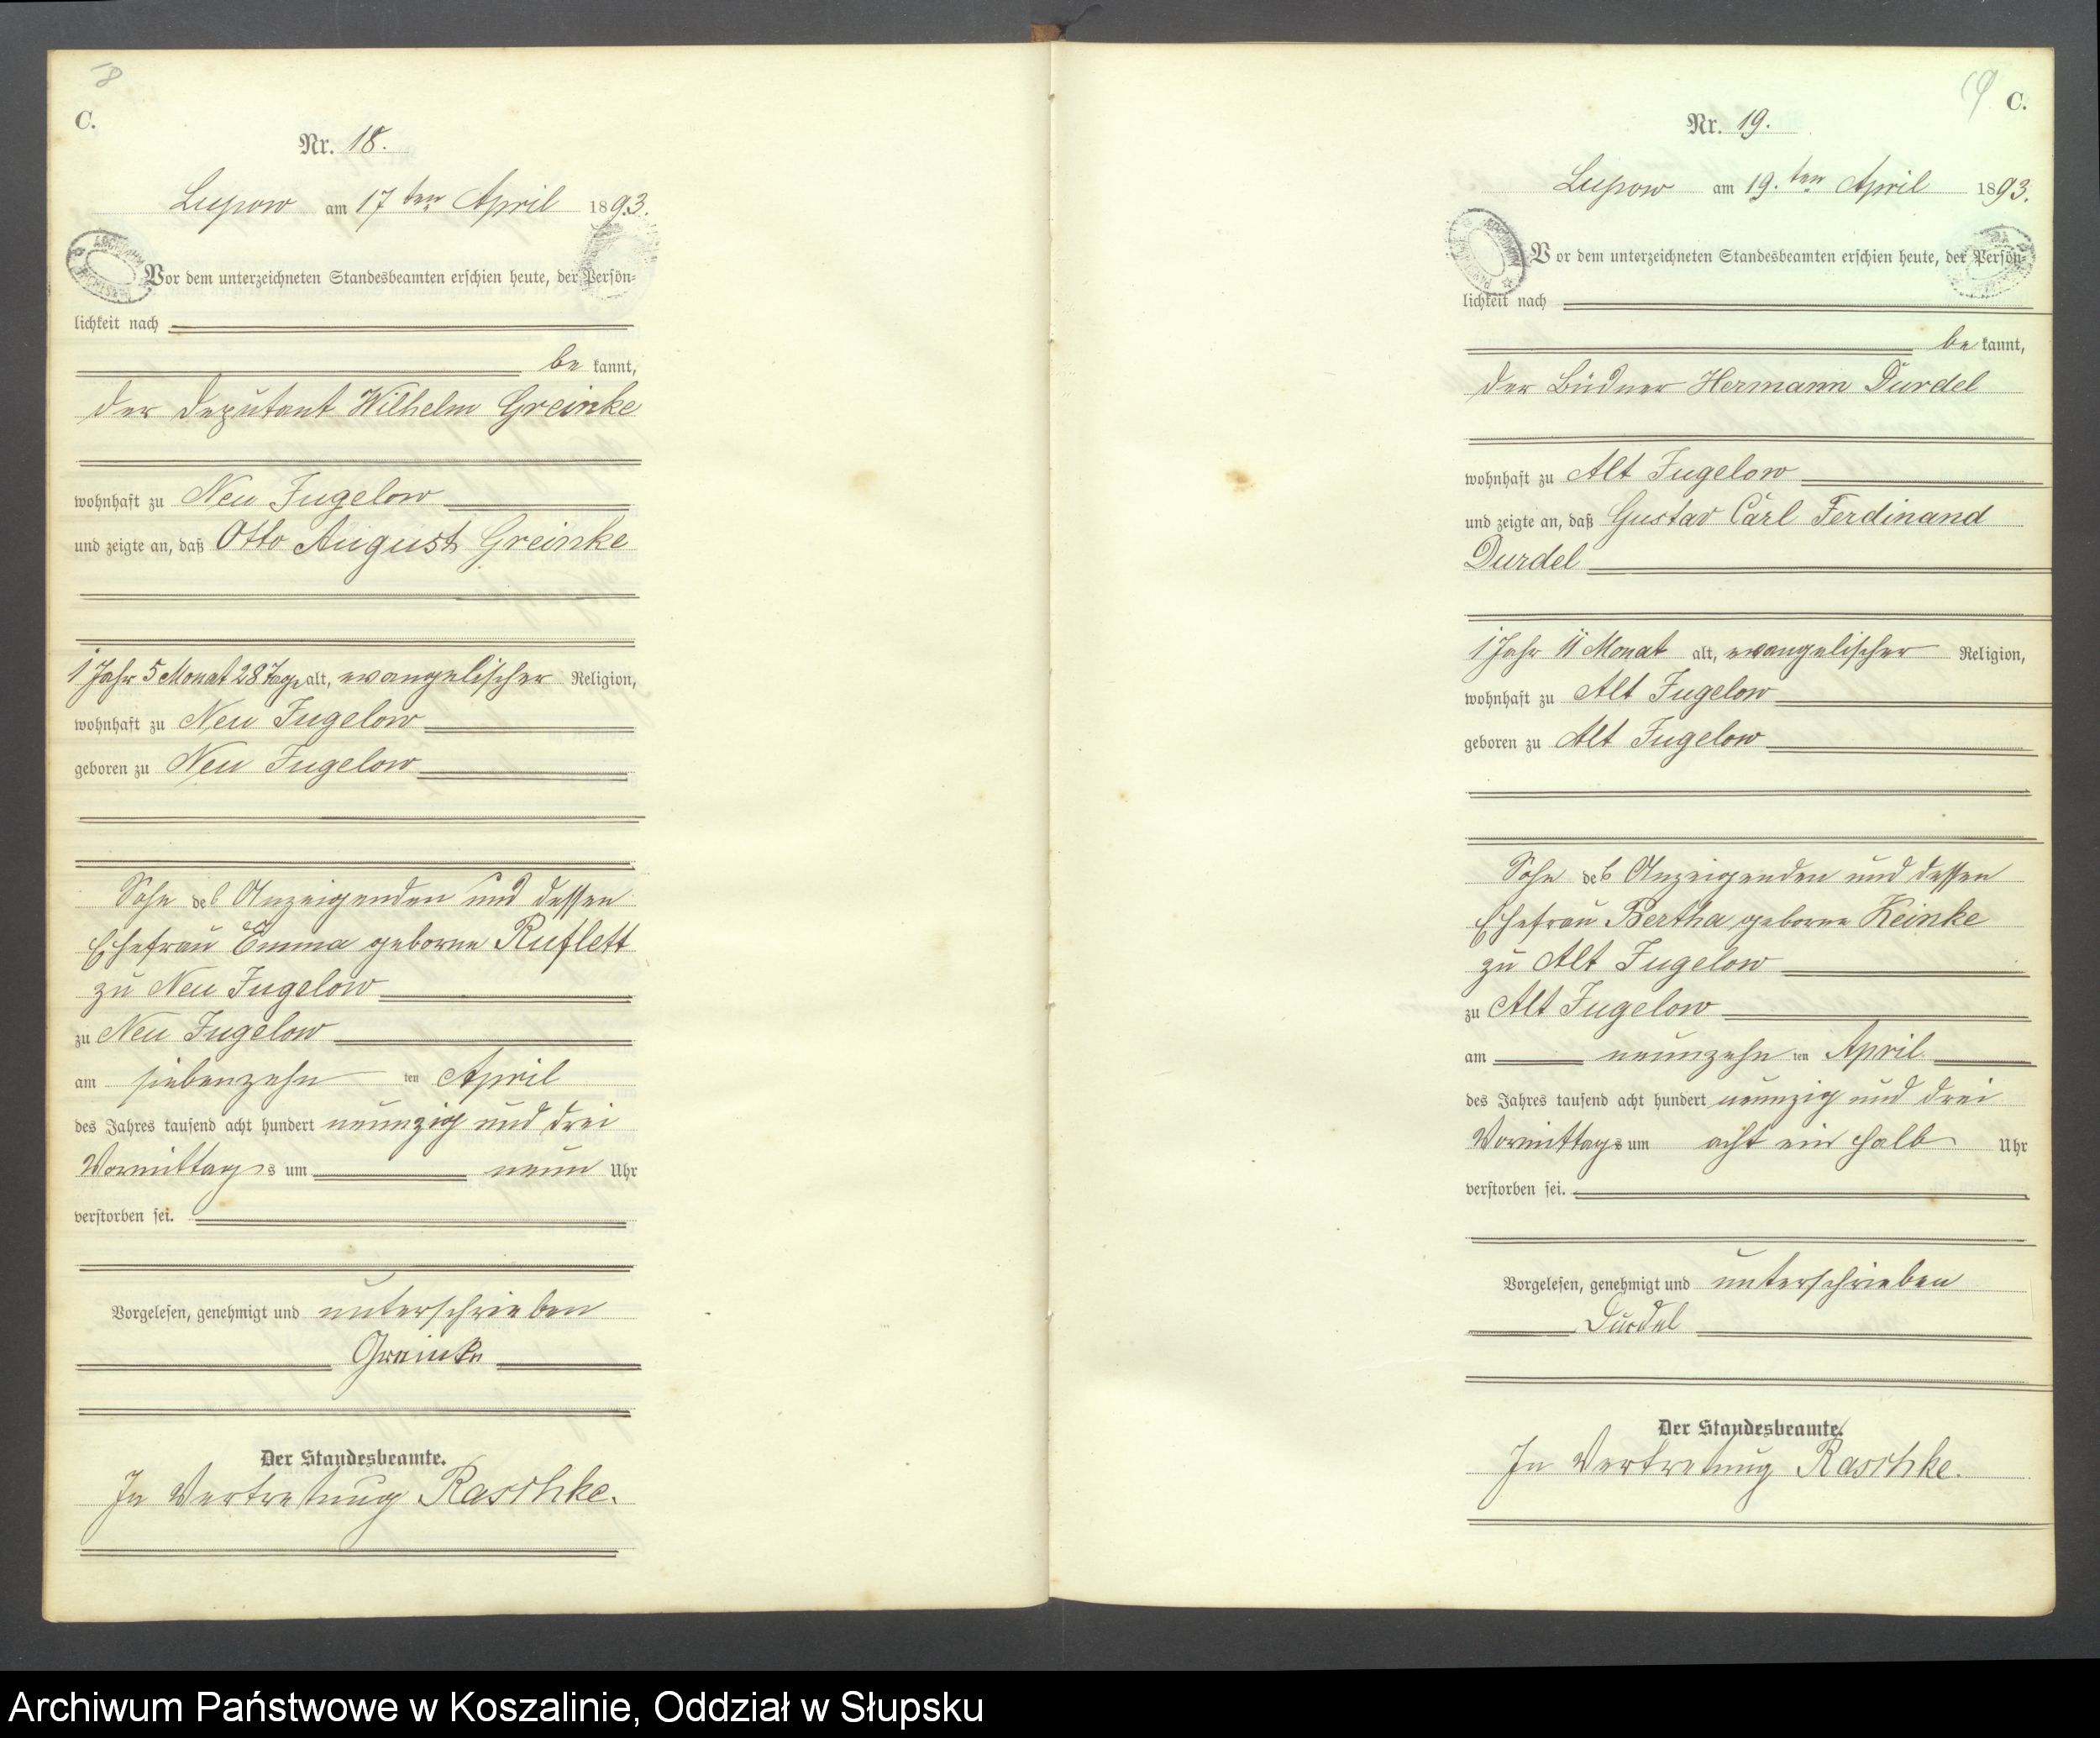 C.
Nr. 18.
Lupow am 17ten April 1893.
Vor dem unterzeichneten Standesbeamten erschien heute, der Persön-
lichkeit nach
bekannt,
der Deputant Wilhelm Greinke
wohnhaft zu Neu Jugelow
und zeigte an, daß Otto August Greinke
1 Jahr 5 Monat 28 Tage alt, evangelischer Religion,
wohnhaft zu Neu Jugelow
geboren zu Neu Jugelow
Sohn des Anzeigenden und dessen
Ehefrau Emma geborne Ruflett
zu Neu Jugelow
zu Neu Jugelow
am siebenzehn ten April
des Jahres tausend acht hundert neunzig und drei
Vormittags um neun Uhr
verstorben sei.
Vorgelesen, genehmigt und unterschrieben
Greinke
Der Standesbeamte.
In Vertretung Raschke.
19 C.
Nr. 19.
Lupow am 19.ten April 1893.
Vor dem unterzeichneten Standesbeamten erschien heute, der Persön-
lichkeit nach
bekannt,
der Büdner Hermann Durdel
wohnhaft zu Alt Jugelow
und zeigte an, daß Gustav Carl Ferdinand
Durdel
1 Jahr 11 Monat alt, evangelischer Religion,
wohnhaft zu Alt Jugelow
geboren zu Alt Jugelow
Sohn des Anzeigenden und dessen
Ehefrau Bertha geborne Reinke
zu Alt Jugelow
zu Alt Jugelow
am neunzehn ten April
des Jahres tausend acht hundert neunzig und drei
Vormittags um acht ein halb Uhr
verstorben sei.
Vorgelesen, genehmigt und unterschrieben
Durdel
Der Standesbeamte.
In Vertretung Raschke.
Archiwum Państwowe w Koszalinie, Oddział w Słupsku